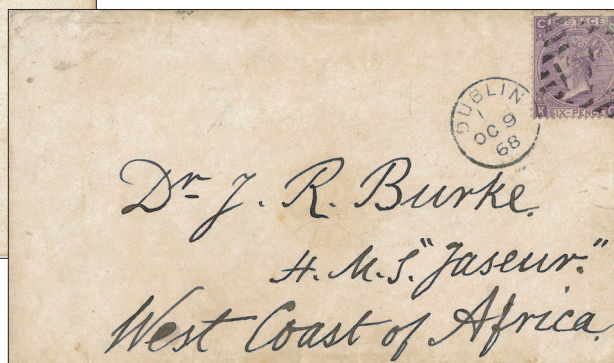 POSTAGE
SIX-PENCE
DUBLIN
OC 9
68
Dr J. R. Burke.
H.M.S. "Jaseur."
West Coast of Africa.